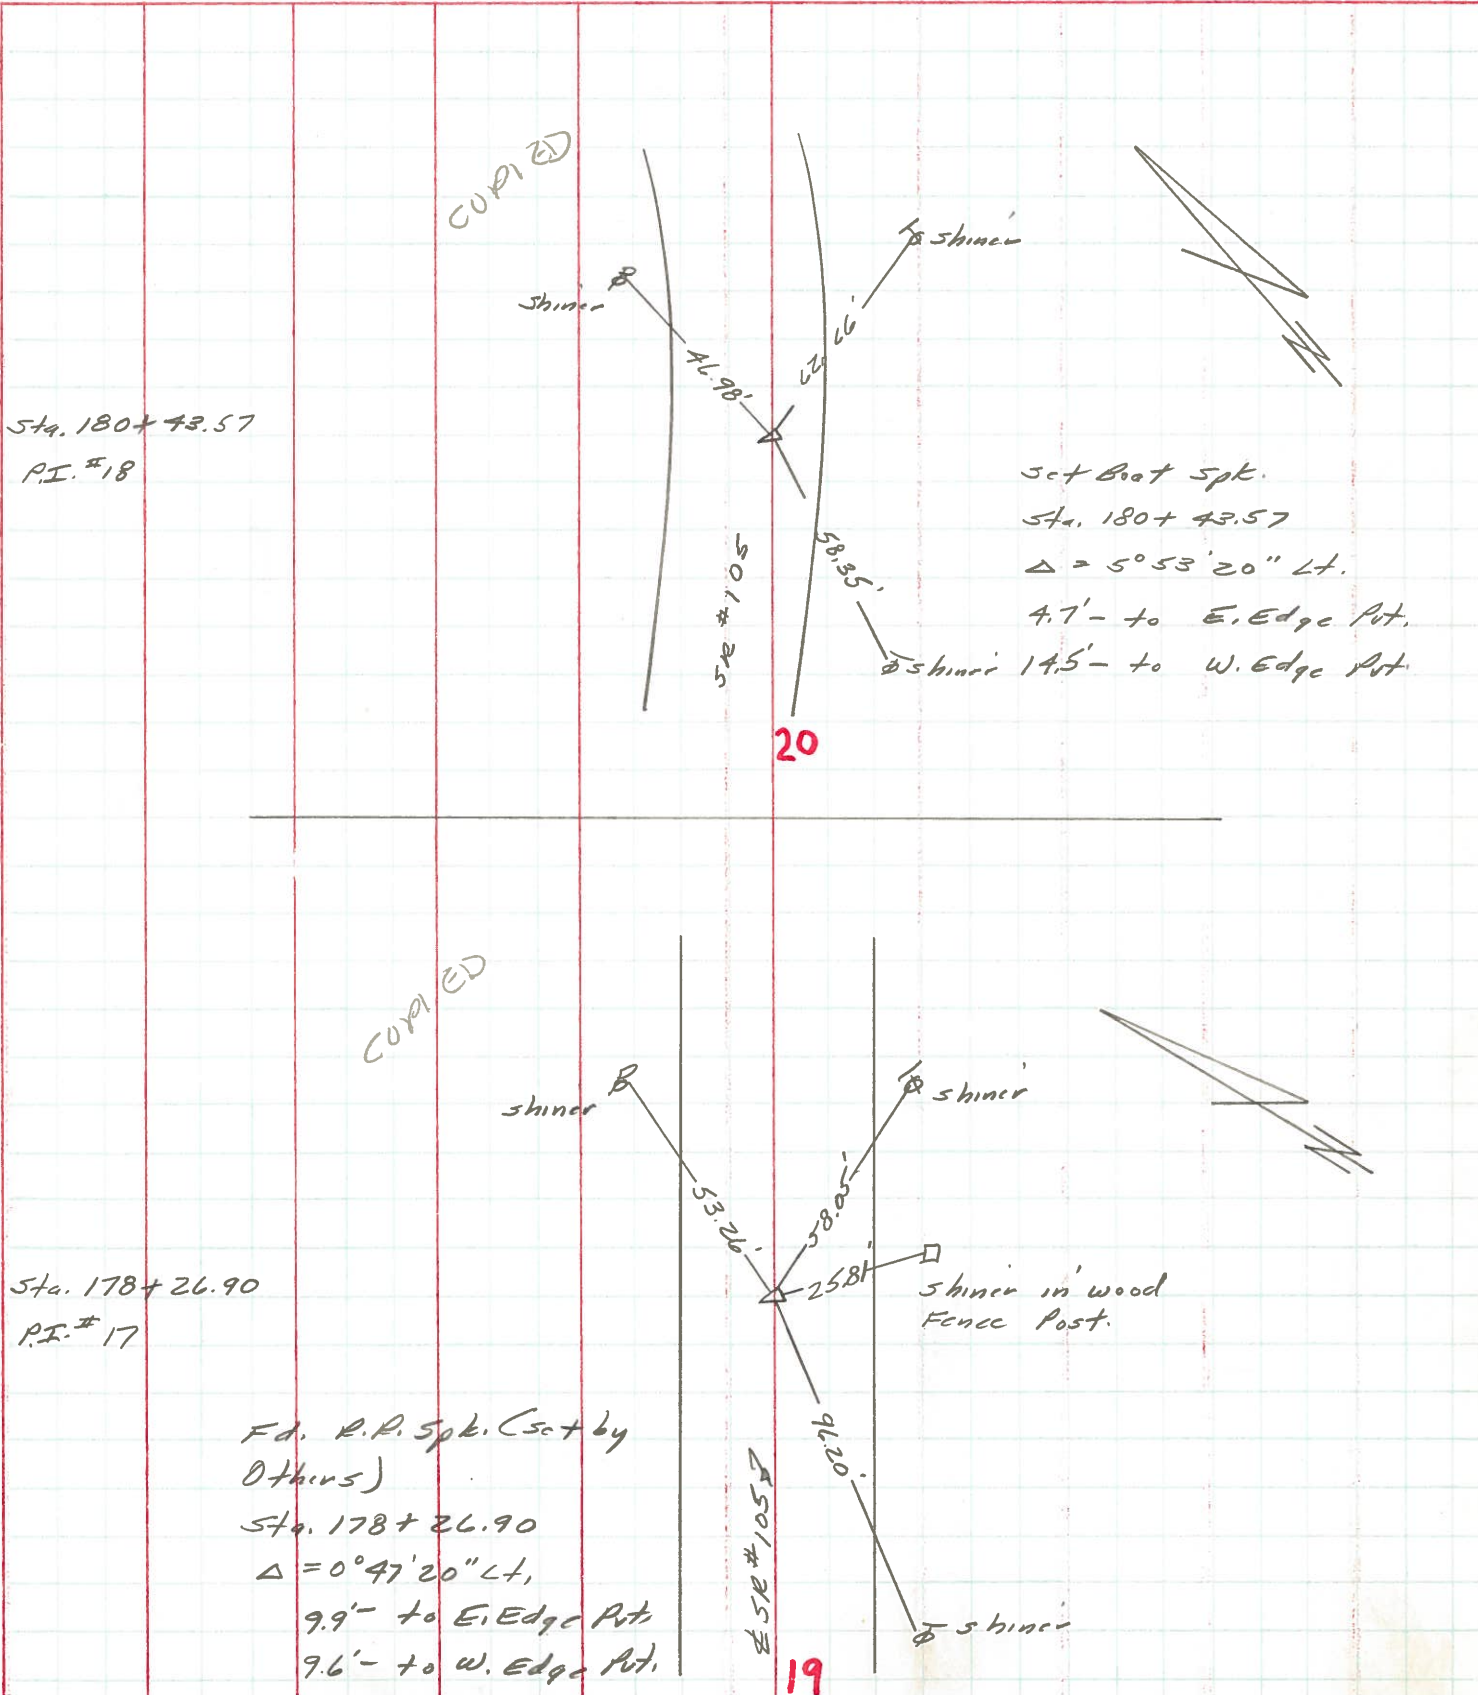 COPIED
shiner
shiner
46.98'
62.66'
Sta. 180+43.57
P.I. #18
Set Boat Spk.
Sta. 180+43.57
Δ = 5°53'20" Lt.
4.7'- to E. Edge Pvt.
14.5'- to W. Edge Pvt.
58.35'
shiner
SR #105
20
COPIED
shiner
shiner
53.26'
58.05'
25.81'
shiner in wood
Fence Post.
Sta. 178+26.90
P.I. #17
96.20'
Fd. R.R. Spk. (set by
Others)
Sta. 178+26.90
Δ = 0°47'20" Lt.
9.9'- to E. Edge Pvt.
9.6'- to W. Edge Pvt.
SR #105
shiner
19